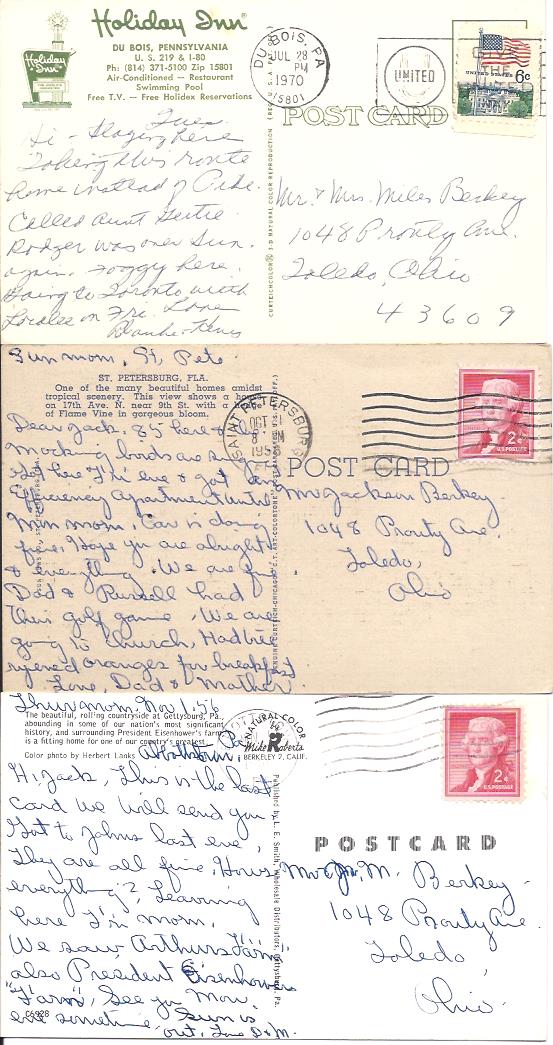 Holiday Inn
DU BOIS, PENNSYLVANIA
U. S. 219 & I-80
Ph: (814) 371-5100 Zip 15801
Air-Conditioned — Restaurant
Swimming Pool
Free T.V. — Free Holidex Reservations
Holiday Inn
DU BOIS, PA
JUL 28
PM
1970
15801
UNITED
UNITED STATES 6c
POST CARD
Tues.
Hi - Staying here
Taking this route
home instead of Pike.
Called Aunt Gertie.
Rodger was over Sun.
again. Foggy here.
Going to Toronto with
on Fri. Love
CURTEICHCOLOR 3-D NATURAL COLOR REPRODUCTION
Mr. & Mrs. Miles Berkey
1048 Prouty Ave.
Toledo, Ohio
43609
Sun mom, St. Pete
ST. PETERSBURG, FLA.
One of the many beautiful homes amidst
tropical scenery. This view shows a
on 17th Ave. N. near 9th St. with a
of Flame Vine in gorgeous bloom.
SAINT PETERSBURG
OCT
2c
U.S. POSTAGE
POST CARD
Dear Jack. 85 here &
Mocking birds are
Got here Fri eve & got an
Efficiency Apartment until
Mon morn, Car is doing
fine, Hope you are alright
& everything. We are fine
Dad & Russell had
their golf game. We are
going to church, Had tree
ripened oranges for breakfast
Love, Dad & Mother
GENUINE CURTEICH-CHICAGO "C.T. ART-COLORTONE" POST CARD
Mr Jackson Berkey
1048 Prouty Ave.
Toledo,
Ohio
Thur morn, Nov 1-56
The beautiful, rolling countryside at Gettysburg, Pa.,
abounding in some of our nation's most significant
history, and surrounding President Eisenhower's farm,
is a fitting home for one of our country's greatest.
Color photo by Herbert Lanks
NATURAL COLOR
Mike Roberts
BERKELEY 2, CALIF.
2c
U.S. POSTAGE
POSTCARD
Hi Jack, This is the last
card we will send you
Got to Johns last eve,
They are all fine, Hows
everything? Leaving
here Fri morn.
We saw Arthurs Farm
also President Eisenhowers
"Farm", See you Mon.
eve sometime, Sun is
out, Love D & M.
C6928
Published by L. E. Smith, Wholesale Distributors, Gettysburg, Pa.
Mr Jr. M. Berkey
1048 Prouty Ave
Toledo
Ohio.